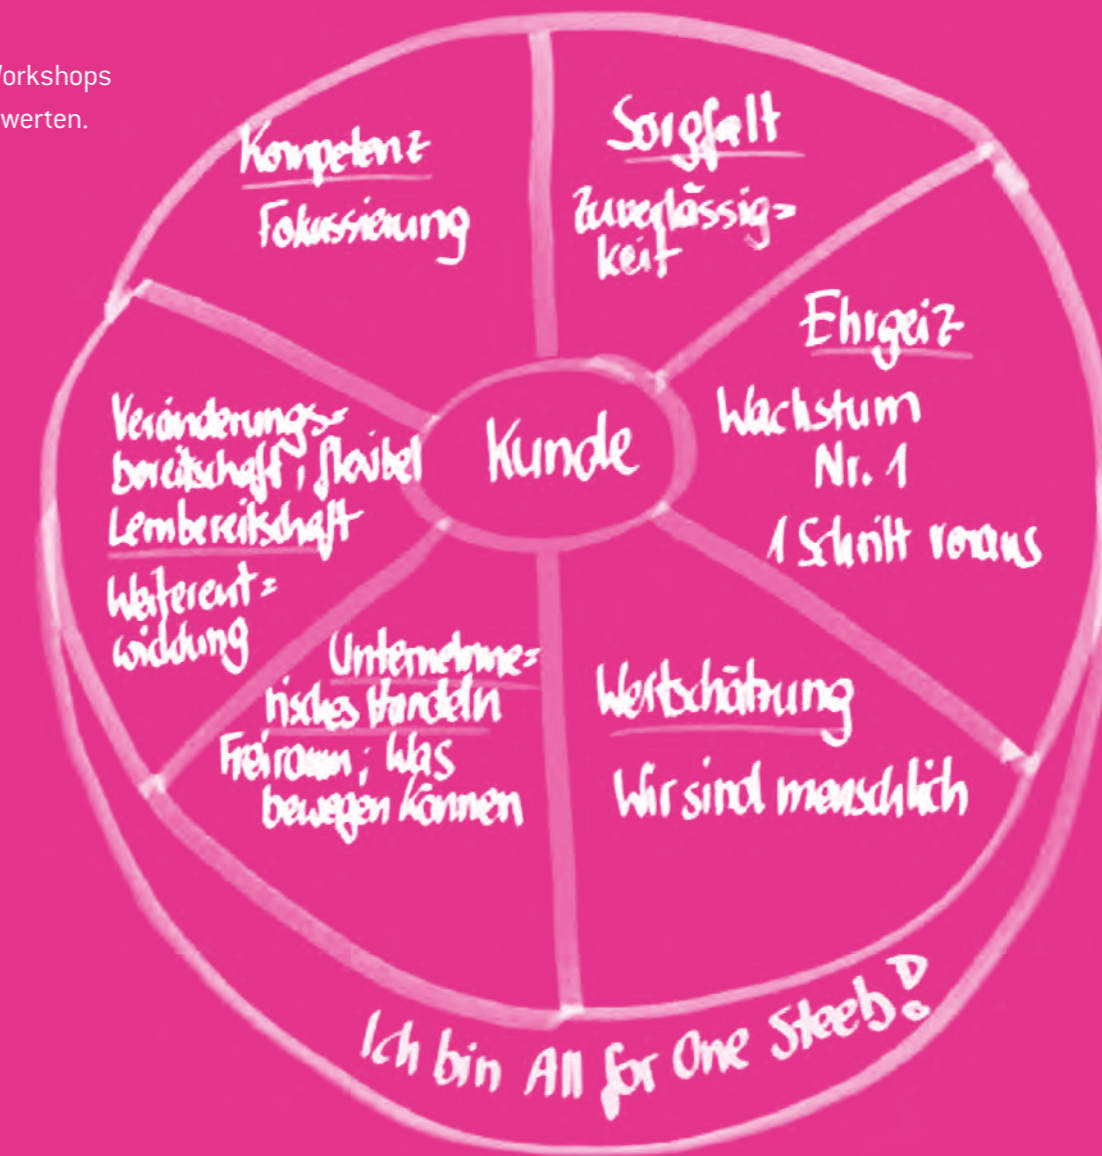 Workshops
werten.
Kompetenz
Fokussierung
Sorgfalt
Zuverlässig=
keit
Ehrgeiz
Wachstum
Nr. 1
1 Schritt voraus
Kunde
Veränderungs=
bereitschaft; flexibel
Lernbereitschaft
Weiterent=
wicklung
Unternehme=
risches Handeln
Freiraum; Was
bewegen können
Wertschätzung
Wir sind menschlich
Ich bin All for One Steeb!